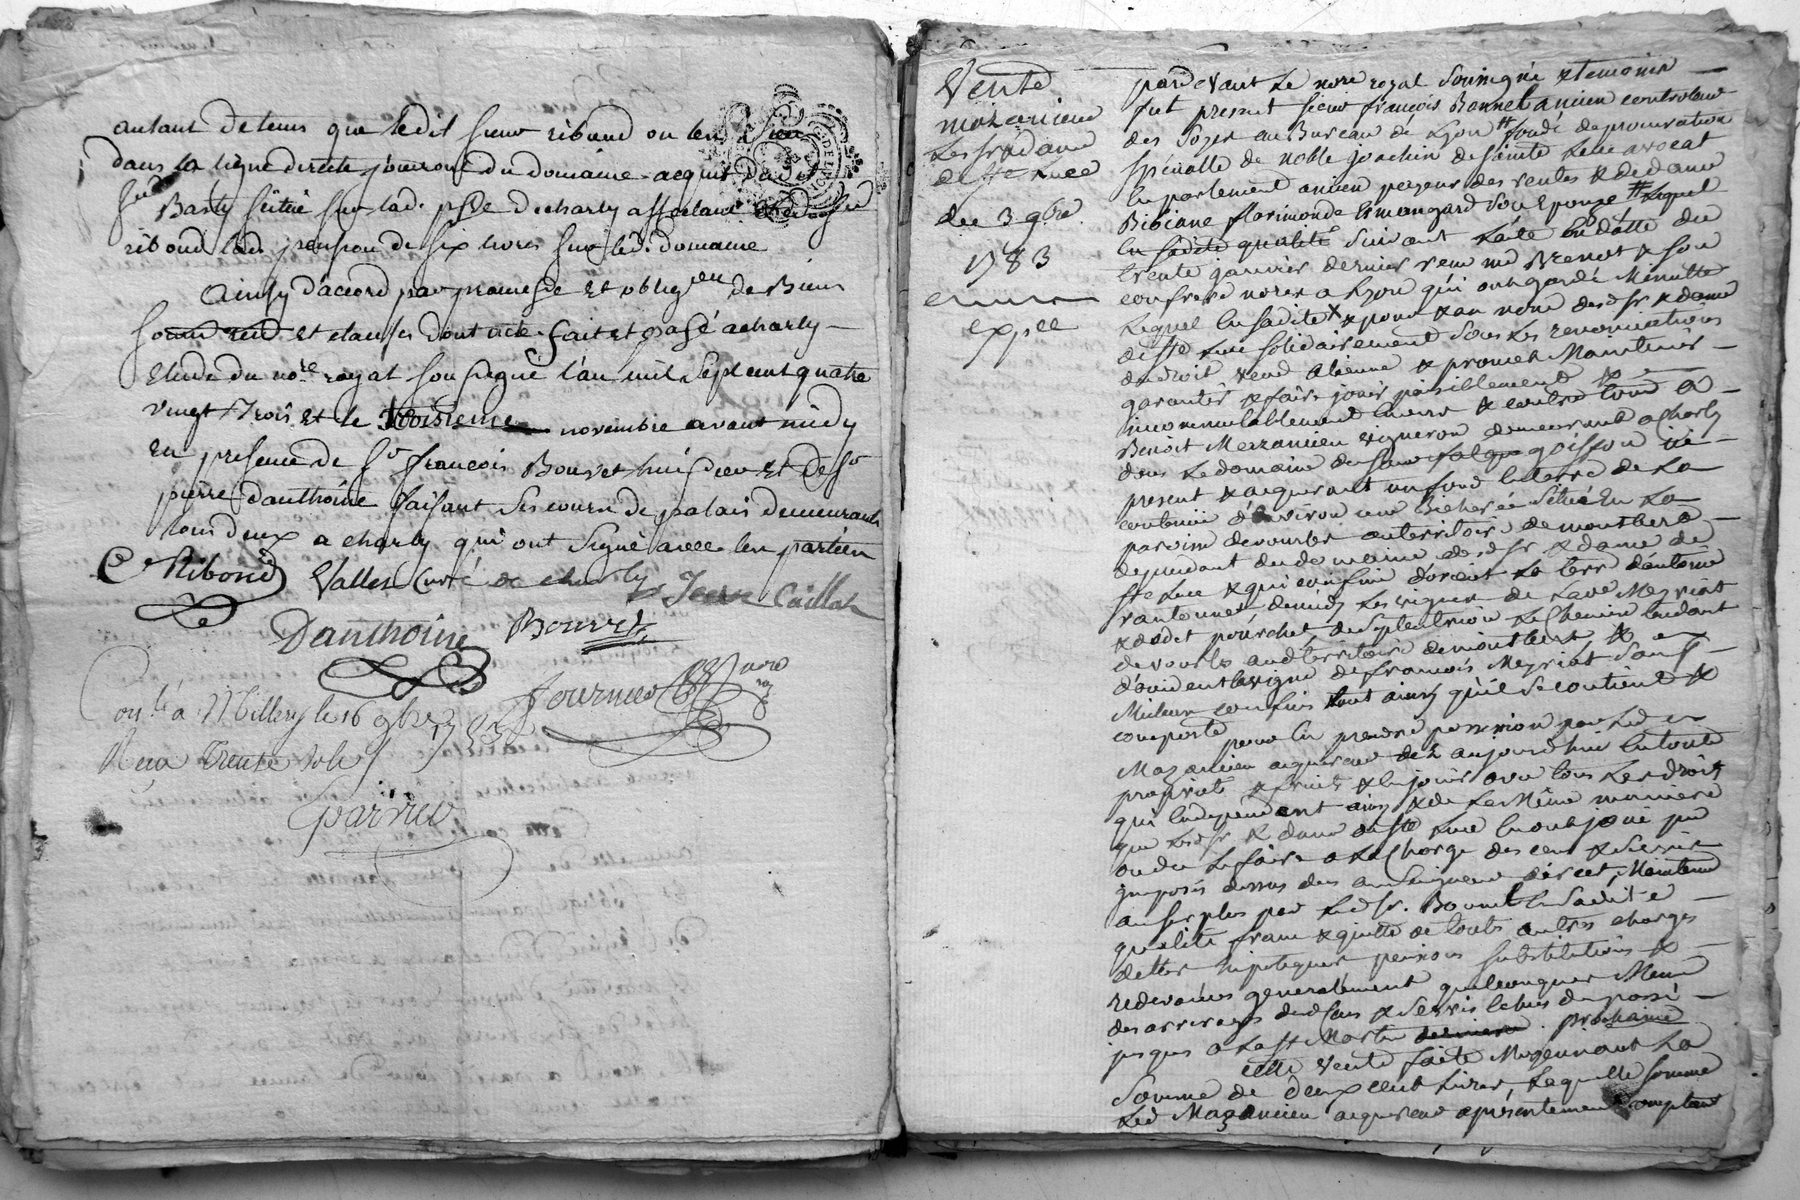 autant de tems que ledit sieur riboud ou les siens
dans la ligne directe jouiront du domaine acquis dudit
Sr Barly située sur lad. psse de charly affectant
riboud lad. pension de six livres sur led. domaine
Ainsy d'accord par promesse et oblig.en de Biens
et clauses dont acte fait et passé a charly
Etude du no.re royal soussigné l'an mil sept cent quatre
vingt trois et le troisieme novembre avant midy
en presence de Sr françois Bouvet huissier et de Sr
pierre danthoine faisant ses cours de palais demeurants
tous deux a charly qui ont signé avec les parties
Riboud Valles curé de charly Jean Caillat
Danthoine Bouvet
Fournier no.re roy.
Con.lé a Millery le 16 9bre 1783
Reçu trente sols
parrieu
Vente
mazancieu
Les sr & dame
de Ste Luce
du 3 9bre
1783
exp.ée
pardevant le no.re royal soussigné & temoins
fut present sieur françois Bonnet ancien controleur
des Soyes au Bureau de Lyon fondé de procuration
spécialle de noble joachin de sainte Luce avocat
en parlement ancien payeur des rentes & de dame
Bibiane florimonde Ermangard son Epouse
en sadite qualité suivant l'acte en datte du
trente janvier dernier recu me Brenot & son
confrere no.res a Lyon qui ont gardé Minutte
Lequel en sadite & pour & au nom desd. sr & dame
de Ste Luce solidairement sous les renonciations
de droit vend aliene & promet Maintenir
garantir & faire jouir paisiblement &
incommutablement envers & contre tous a
Benoit Mazancieu vigneron demeurant a Charly
dans le domaine du sieur goisson ici
present & acquerant un fond en terre de la
contenue d'environ une bicherée située en la
paroisse de vourles au territoire de montbert
dependant du domaine desd. sr & dame de
Ste Luce & qui confine d'orient la terre d'antoine
de midy les vignes de la ve Meyriat
& dodet pourchet, de septentrion le chemin tendant
de vourles aud. territoire de montbert &
d'occident la vigne de françois Meyriat sauf
Meilleurs confins tout ainsy qu'il se contient &
comporte
pour en prendre possession par led.
Mazancieu acquereur dez aujourd'huy en toute
proprieté & fruits & en jouir avec tous les droits
qui en dependent ainsy & de la même maniere
que lesd. sr & dame de Ste Luce en ont joui pu
ou du le faire a la Charge des cens & servis
imposés dessus dus au seigneur direct, Maintenu
au surplus par led. sr. Bonnet en sadite
qualité franc & quitte de toutes autres charges
dettes hipoteques pensions substitutions &
redevances generalement quelconques Même
des arrerages desd. cens & servis echus du passé
jusques a la st Martin prochaine
cette vente faite Moyennant la
somme de deux cent livres laquelle somme
led. Mazancieu acquereur a présentement comptant